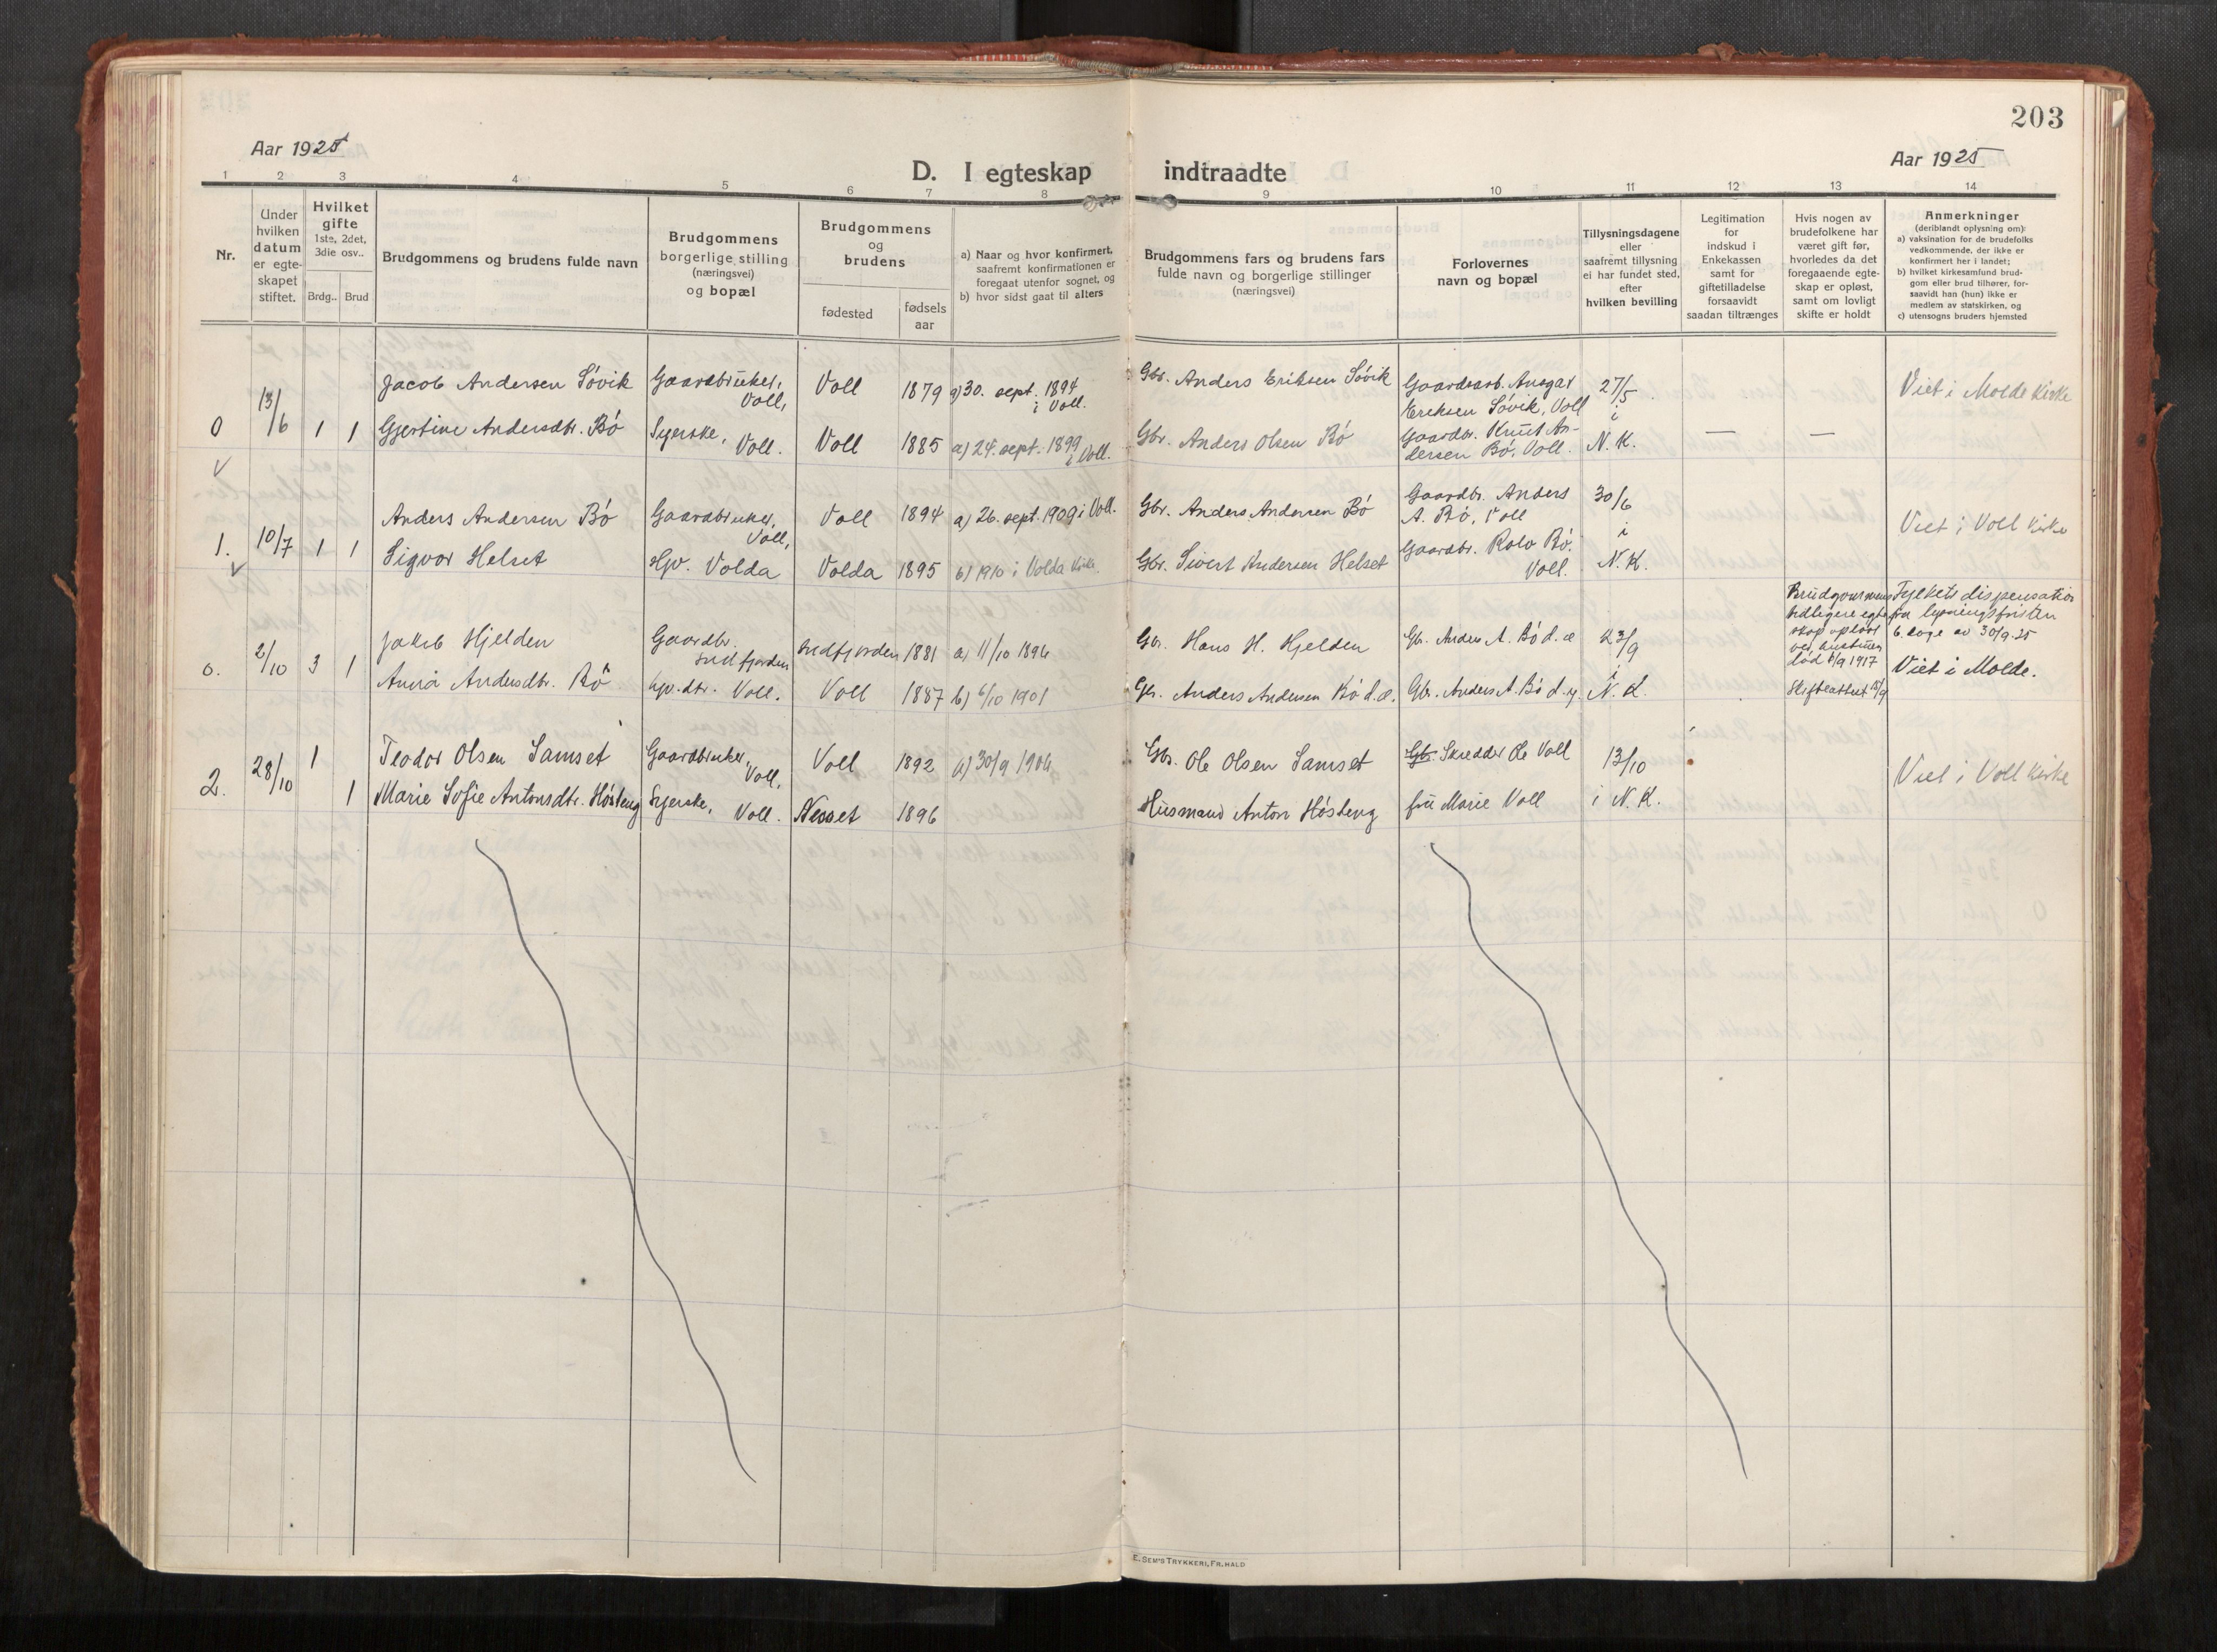 203
Aar 1925
Aar 1925
D. I egteskap indtraadte
1 2 3 4 5 6 7 8 9 10 11 12 13 14
Nr.
Under
hvilken
datum
er egte-
skapet
stiftet.
Hvilket
gifte
1ste, 2det,
3die osv..
Brdg.. Brud
Brudgommens og brudens fulde navn
Brudgommens
borgerlige stilling
(næringsvei)
og bopæl
Brudgommens
og
brudens
fødested
fødsels
aar
a) Naar og hvor konfirmert,
saafremt konfirmationen er
foregaat utenfor sognet, og
b) hvor sidst gaat til alters
Brudgommens fars og brudens fars
fulde navn og borgerlige stillinger
(næringsvei)
Forlovernes
navn og bopæl
Tillysningsdagene
eller
saafremt tillysning
ei har fundet sted,
efter
hvilken bevilling
Legitimation
for
indskud i
Enkekassen
samt for
giftetilladelse
forsaavidt
saadan tiltrænges
Hvis nogen av
brudefolkene har
været gift før,
hvorledes da det
foregaaende egte-
skap er opløst,
samt om lovligt
skifte er holdt
Anmerkninger
(deriblandt oplysning om):
a) vaksination for de brudefolks
vedkommende, der ikke er
konfirmert her i landet;
b) hvilket kirkesamfund brud-
gom eller brud tilhører, for-
saavidt han (hun) ikke er
medlem av statskirken, og
c) utensogns bruders hjemsted
0
13/6
1 1
Jacob Andersen Søvik
Gjertine Andersdtr. Bø
Gaardbruker,
Voll,
Syerske,
Voll.
Voll 1879 a) 30. sept. 1894
i Voll.
Voll 1885 a) 24. sept. 1899
i Voll.
Gbr. Anders Eriksen Søvik
Gbr. Anders Olsen Bø
Gaardsarb. Ansgar
Eriksen Søvik, Voll
Gaardbr. Knut An-
dersen Bø, Voll.
27/5
i
N. K.
— —
Viet i Molde kirke
1.
10/7
1 1
Anders Andersen Bø
Sigvor Helset
Gaardbruker,
Voll,
Hpv. Volda
Voll 1894 a) 26. sept. 1909 i Voll.
Volda 1895 b) 1910 i Volda kirke.
Gbr. Anders Andersen Bø
Gbr. Sivert Andersen Helset
Gaardbr. Anders
A. Bø, Voll
Gaardbr. Rolv Bø.
Voll.
30/6
i
N. K.
Viet i Voll kirke
0.
2/10
3 1
Jakob Hjelden
Anna Andersdtr. Bø
Gaardbr.
Indfjorden
Gp. dtr. Voll.
Indfjorden 1881 a) 11/10 1896
Voll 1887 b) 6/10 1901
Gbr. Hans H. Hjelden
Gbr. Anders Andersen Bø d. æ.
Gbr. Anders A. Bø d. æ
Gbr. Anders A. Bø d. y.
23/9
i
N. K.
Brudgommens
tidligere egte
skap opløst
ved hustruens
død 6/9 1917
Skifteattest 18/9
Fylkets dispensation
fra lysningsfristen
6 dage av 30/9. 25
Viet i Molde.
2.
28/10
1
1
Teodor Olsen Samset
Marie Sofie Antonsdtr. Høsteng
Gaardbruker,
Voll,
Syerske,
Voll.
Voll 1892 a) 30/9 1906
Nesset 1896
Gbr. Ole Olsen Samset
Husmand Anton Høsteng
Gbr. Skredder Ole Voll
fru Marie Voll
13/10
i N. K.
Viet i Voll kirke
E. SEM'S TRYKKERI, FR.HALD